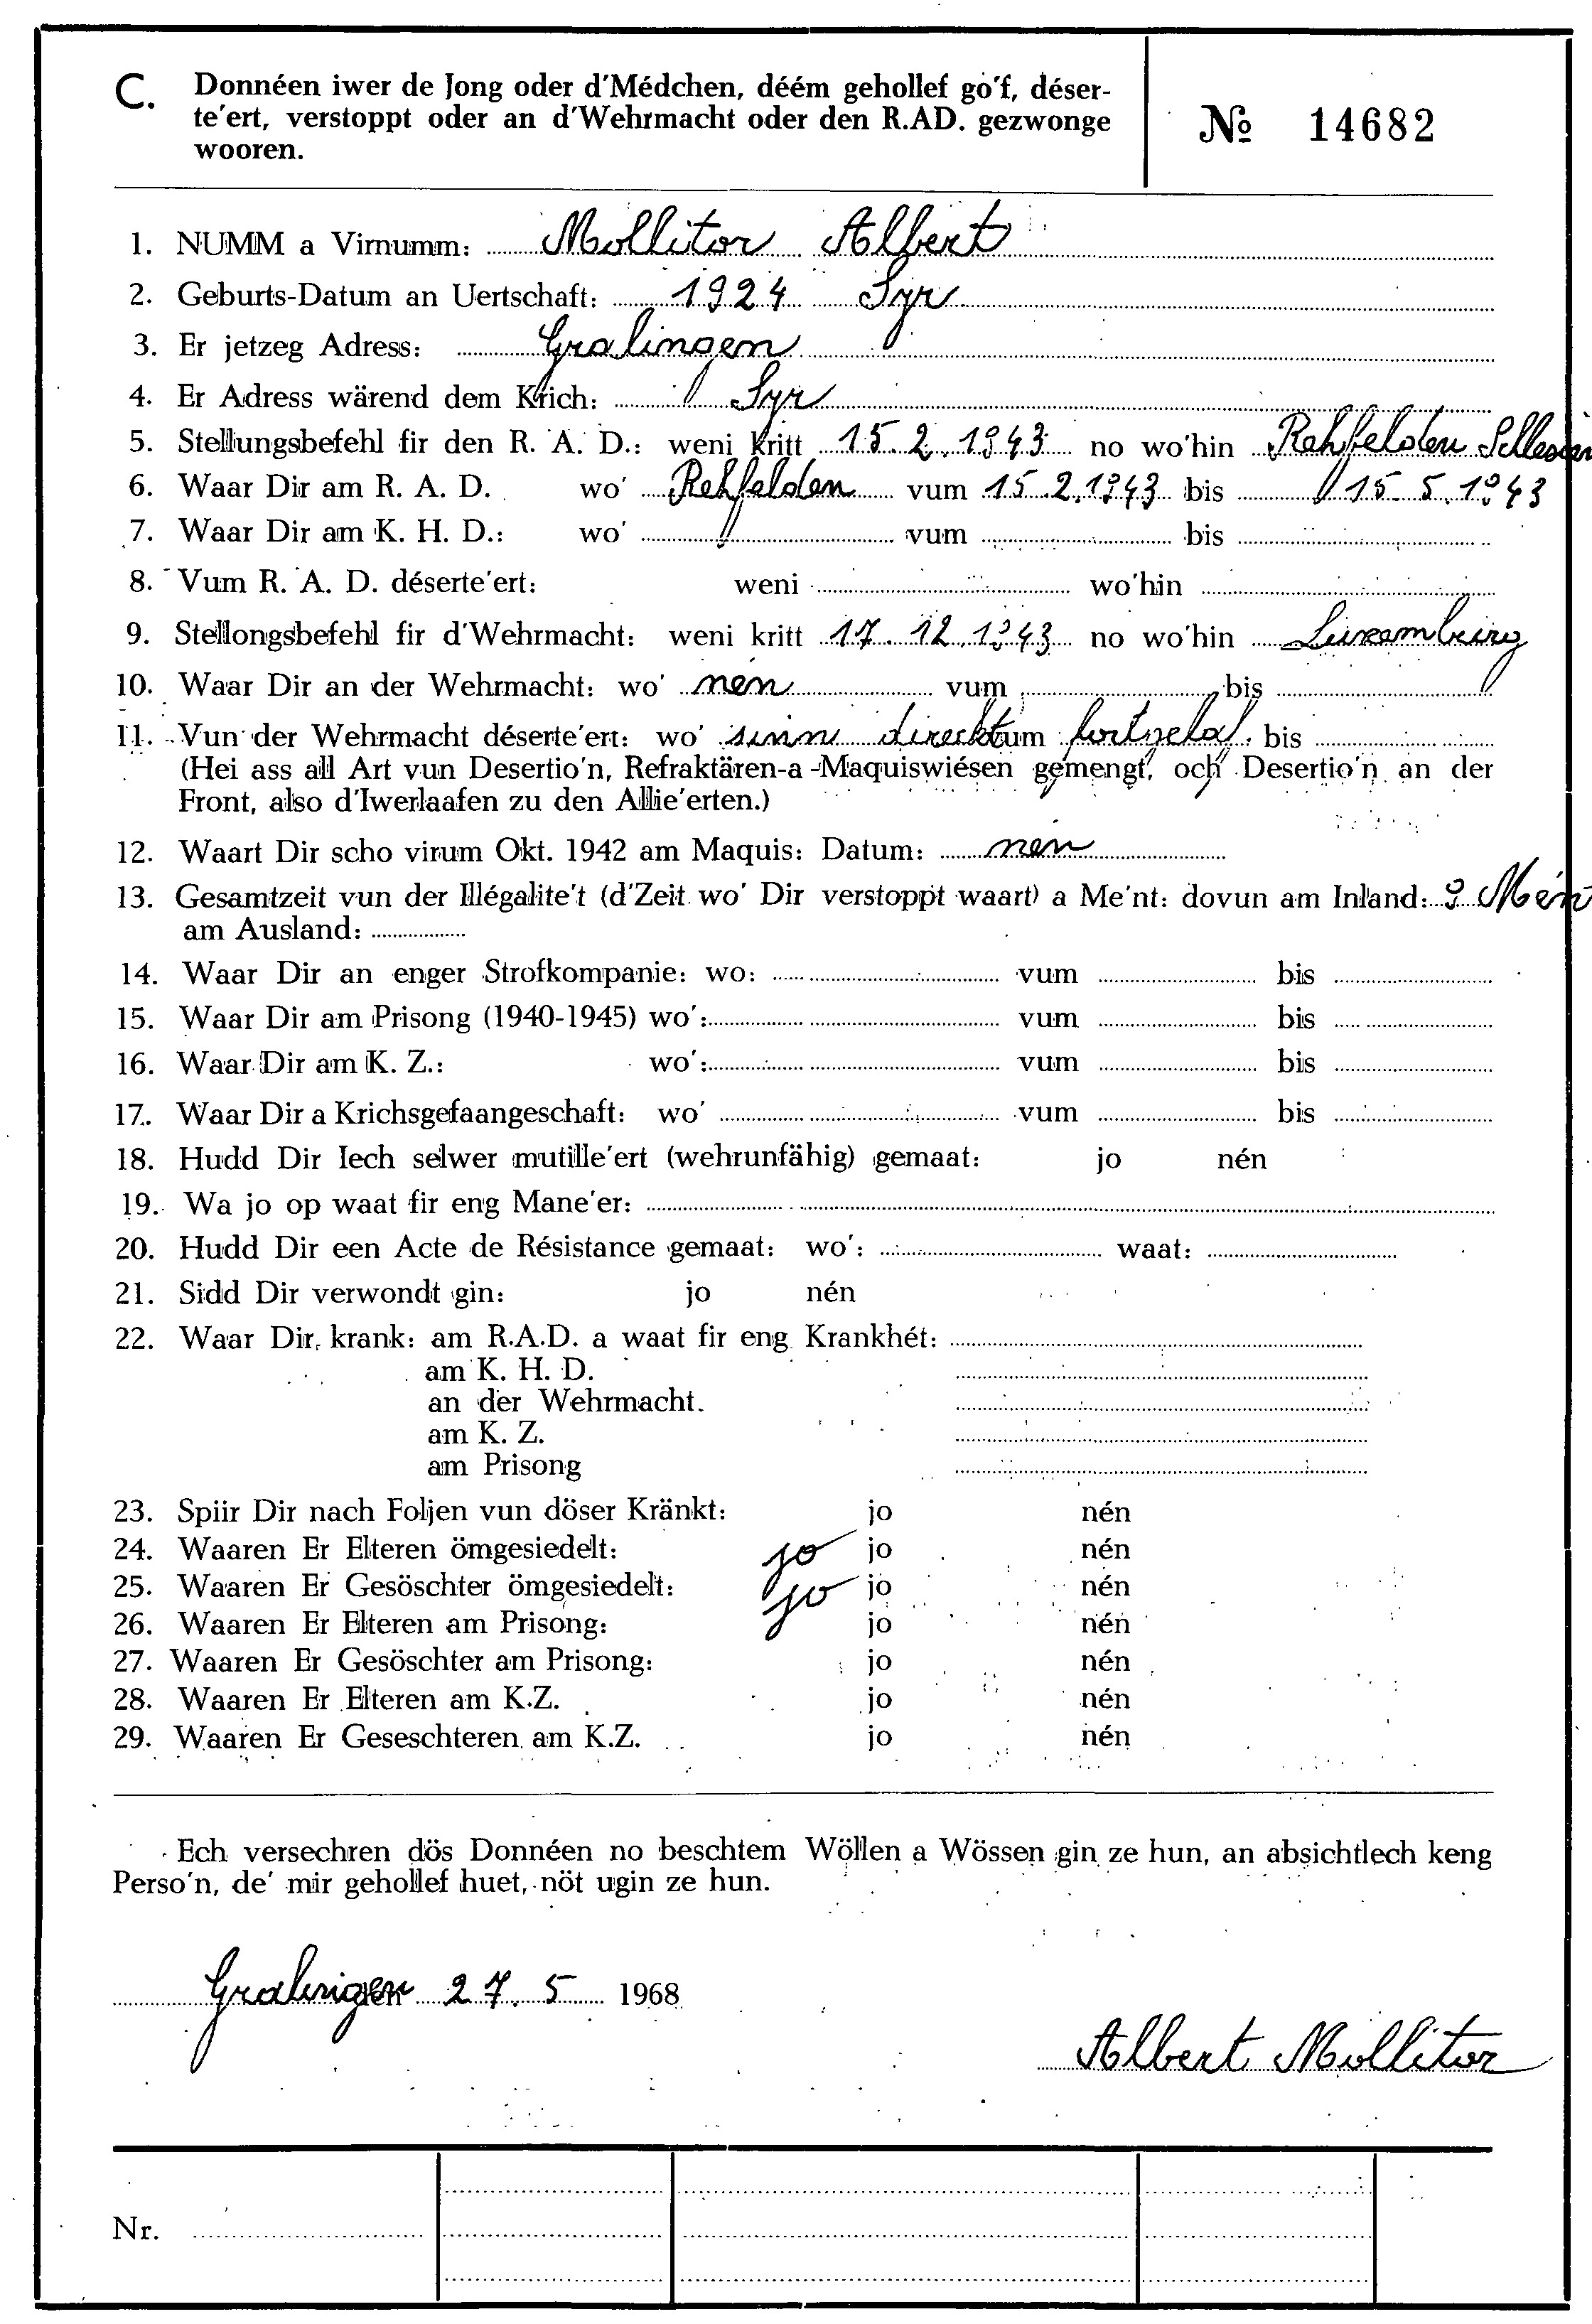 C. Donnéen iwer de Jong oder d'Médchen, déém gehollef go'f, déser-
te'ert, verstoppt oder an d'Wehrmacht oder den R.AD. gezwonge
wooren.
№ 14682
1. NUMM a Virnumm: Mollitor Albert
2. Geburts-Datum an Uertschaft: 1924 Syr
3. Er jetzeg Adress: Gralingen
4. Er Adress wärend dem Krich: Syr
5. Stellungsbefehl fir den R. A. D.: weni kritt 15.2.1943 no wo'hin Rehfelden Schlesien
6. Waar Dir am R. A. D. wo' Rehfelden vum 15.2.1943 bis 15.5.1943
7. Waar Dir am K. H. D.: wo' vum bis
8. Vum R. A. D. déserte'ert: weni wo'hin
9. Stellongsbefehl fir d'Wehrmacht: weni kritt 17.12.1943 no wo'hin Luxemburg
10. Waar Dir an der Wehrmacht: wo' nén vum bis
11. Vun der Wehrmacht déserte'ert: wo' sinn direckt vum fortgelaf. bis
(Hei ass all Art vun Desertio'n, Refraktären-a-Maquiswiésen gemengt, och Desertio'n an der
Front, also d'Iwerlaafen zu den Allie'erten.)
12. Waart Dir scho virum Okt. 1942 am Maquis: Datum: nén
13. Gesamtzeit vun der Illégalite't (d'Zeit wo' Dir verstoppt waart) a Me'nt: dovun am Inland: 9 Mén
am Ausland:
14. Waar Dir an enger Strofkompanie: wo: vum bis
15. Waar Dir am Prisong (1940-1945) wo': vum bis
16. Waar Dir am K. Z.: wo': vum bis
17. Waar Dir a Krichsgefaangeschaft: wo' vum bis
18. Hudd Dir Iech selwer mutille'ert (wehrunfähig) gemaat: jo nén
19. Wa jo op waat fir eng Mane'er:
20. Hudd Dir een Acte de Résistance gemaat: wo': waat:
21. Sidd Dir verwondt gin: jo nén
22. Waar Dir krank: am R.A.D. a waat fir eng Krankhét:
am K. H. D.
an der Wehrmacht.
am K. Z.
am Prisong
23. Spiir Dir nach Foljen vun döser Kränkt: jo nén
24. Waaren Er Elteren ömgesiedelt: jo jo nén
25. Waaren Er Gesöschter ömgesiedelt: jo jo nén
26. Waaren Er Elteren am Prisong: jo nén
27. Waaren Er Gesöschter am Prisong: jo nén
28. Waaren Er Elteren am K.Z. jo nén
29. Waaren Er Geseschteren am K.Z. jo nén
Ech versechren dös Donnéen no beschtem Wöllen a Wössen gin ze hun, an absichtlech keng
Perso'n, de' mir gehollef huet, nöt ugin ze hun.
Gralingen den 27. 5 1968
Albert Mollitor
Nr.